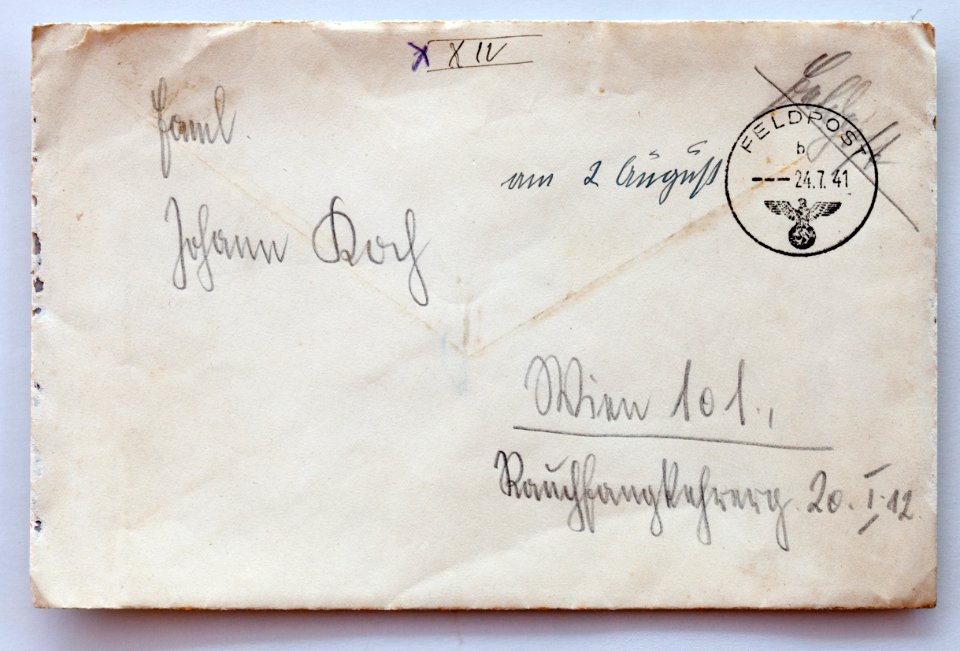 X XIV
Feldpost
Faml.
FELDPOST
b
--- 24.7.41
am 2 August
Johann Koch
Wien 101.,
Rauchfangkehrerg. 20. I. 12.